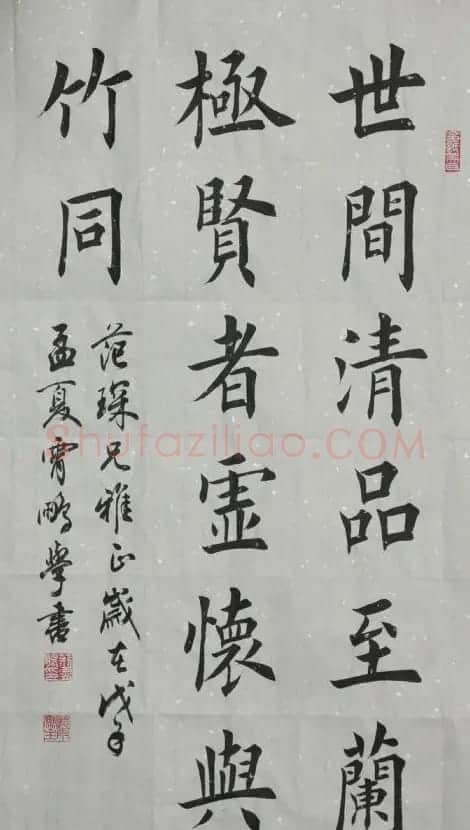 世間清品至蘭
極賢者虛懷與
竹同
范琛兄雅正歲在戊子
孟夏霄鵬學書
Shufaziliao.COM